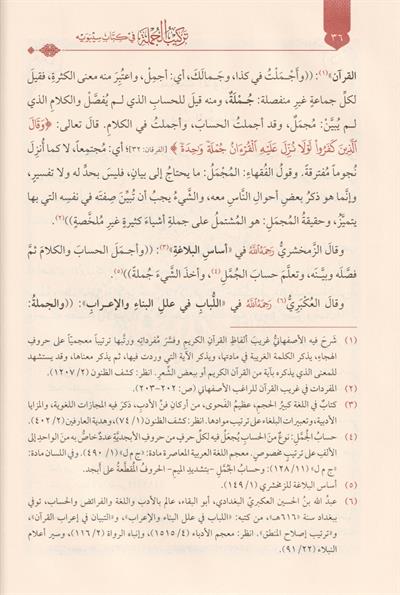 ٣٦
تركيب الجملة في كتاب سيبويه
القرآن»(١): ((وأَجْمَلْتُ في كذا، وجَمالَكَ، أي: أجمِلْ، واعتُبِرَ منه معنى الكثرةِ، فقيلَ
لكلِّ جماعةٍ غيرِ منفصلة: جُمْلَةٌ، ومنه قيلَ للحسابِ الذي لـم يُفَصَّلْ والكلامِ الذي
لـم يُبيَّنْ: مُجمَلٌ، وقد أجملتُ الحسابَ، وأجملتُ في الكلامِ. قال تعالى: ﴿وَقَالَ
ٱلَّذِينَ كَفَرُوا۟ لَوْلَا نُزِّلَ عَلَيْهِ ٱلْقُرْءَانُ جُمْلَةً وَٰحِدَةً﴾ [الفرقان: ٣٢]؛ أي: مُجتمِعاً، لا كما أُنزِلَ
نُجوماً مُفترقةً. وقولُ الفُقهاءِ: المُجْمَلُ: ما يحتاجُ إلى بيانٍ، فليسَ بحدٍّ له ولا تفسيرٍ،
وإنَّما هو ذكرُ بعضِ أحوالِ النَّاسِ معه، والشَّيءُ يجبُ أن تُبيَّنَ صِفتَه في نفسِه التي بها
يتميَّزُ، وحقيقةُ المُجمَلِ: هو المُشتمِلُ على جملةِ أشياءَ كثيرةٍ غيرِ مُلخَّصةٍ))(٢).
وقال الزَّمخشريُّ رحمه الله في «أساسِ البلاغةِ»(٣): ((وأجمـلَ الحسابَ والكلامَ ثمَّ
فصَّلَه وبيَّنَه، وتعلَّمَ حسابَ الجُمَّلِ(٤)، وأخذَ الشَّيءَ جُملةً))(٥).
وقال العُكْبَريُّ(٦) رحمه الله في «اللُّبابِ في عللِ البناءِ والإعـرابِ»: ((والجملةُ:
(١) شَرحَ فيه الأصفهانيُّ غريبَ ألفاظِ القرآنِ الكريمِ وفسَّرَ مُفرداتِه ورتَّبها ترتيباً معجميّاً على حروفِ
الهجاءِ، يذكر الكلمة الغريبة في مادتها، ويذكر الآية التي وردت فيها، ثم يذكر معناها، وقد يستشهد
للمعنى الذي يذكره بآية من القرآن الكريم أو ببعض الشِّعر. انظر: كشف الظنون (٢/ ١٢٠٧).
(٢) المفردات في غريب القرآن للراغب الأصفهاني (ص: ٢٠٢-٢٠٣).
(٣) كتابٌ في اللغة كبيرُ الحجمِ، عظيمُ الفَحوى، من أركانِ فنِّ الأدبِ، ذكرَ فيه المجازات اللغوية، والمزايا
الأدبية، وتعبيرات البلغاء على ترتيب موادها. انظر: كشف الظنون (١/ ٧٤)، وهدية العارفين (٢/ ٤٠٢).
(٤) حسابُ الجُمَّلِ: نوعٌ من الحسابِ يُجعَلُ فيه لكلِّ حرفٍ من حروفِ الأبجديَّةِ عددٌ خاصٌّ به من الواحدِ إلى
الألف على ترتيبٍ مخصوصٍ. معجم اللغة العربية المعاصرة مادة: «ج م ل» (١/ ٤٩٠). وفي اللسان مادة:
«ج م ل» (١١/ ١٢٨): وحسابُ الجُمَّلِ -بتشديدِ الميمِ- الحروفُ المُقطَّعةُ على أبجد.
(٥) أساس البلاغة للزمخشري (١/ ١٤٩).
(٦) عبدُ الله بنُ الحسين العكبريّ البغدادي، أبو البقاء، عالم بالأدب واللغة والفرائض والحساب، توفي
ببغداد سنة «٦١٦هـ»، من كتبه: «اللباب في علل البناء والإعراب»، و«التبيان في إعراب القرآن»،
و«ترتيب إصلاح المنطق». انظر: معجم الأدباء (٤/ ١٥١٥)، وإنباه الرواة (٢/ ١١٦)، وسير أعلام
النبلاء (٢٢/ ٩١).